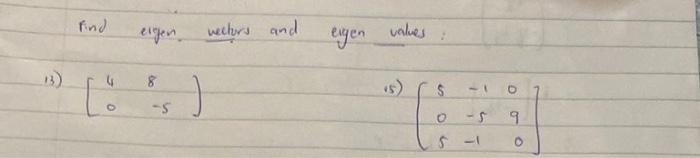 Find eigen vectors and eigen values :
13) [ 4 8 15) [ 5 -1 0
0 -5 ] 0 -5 9
5 -1 0 ]